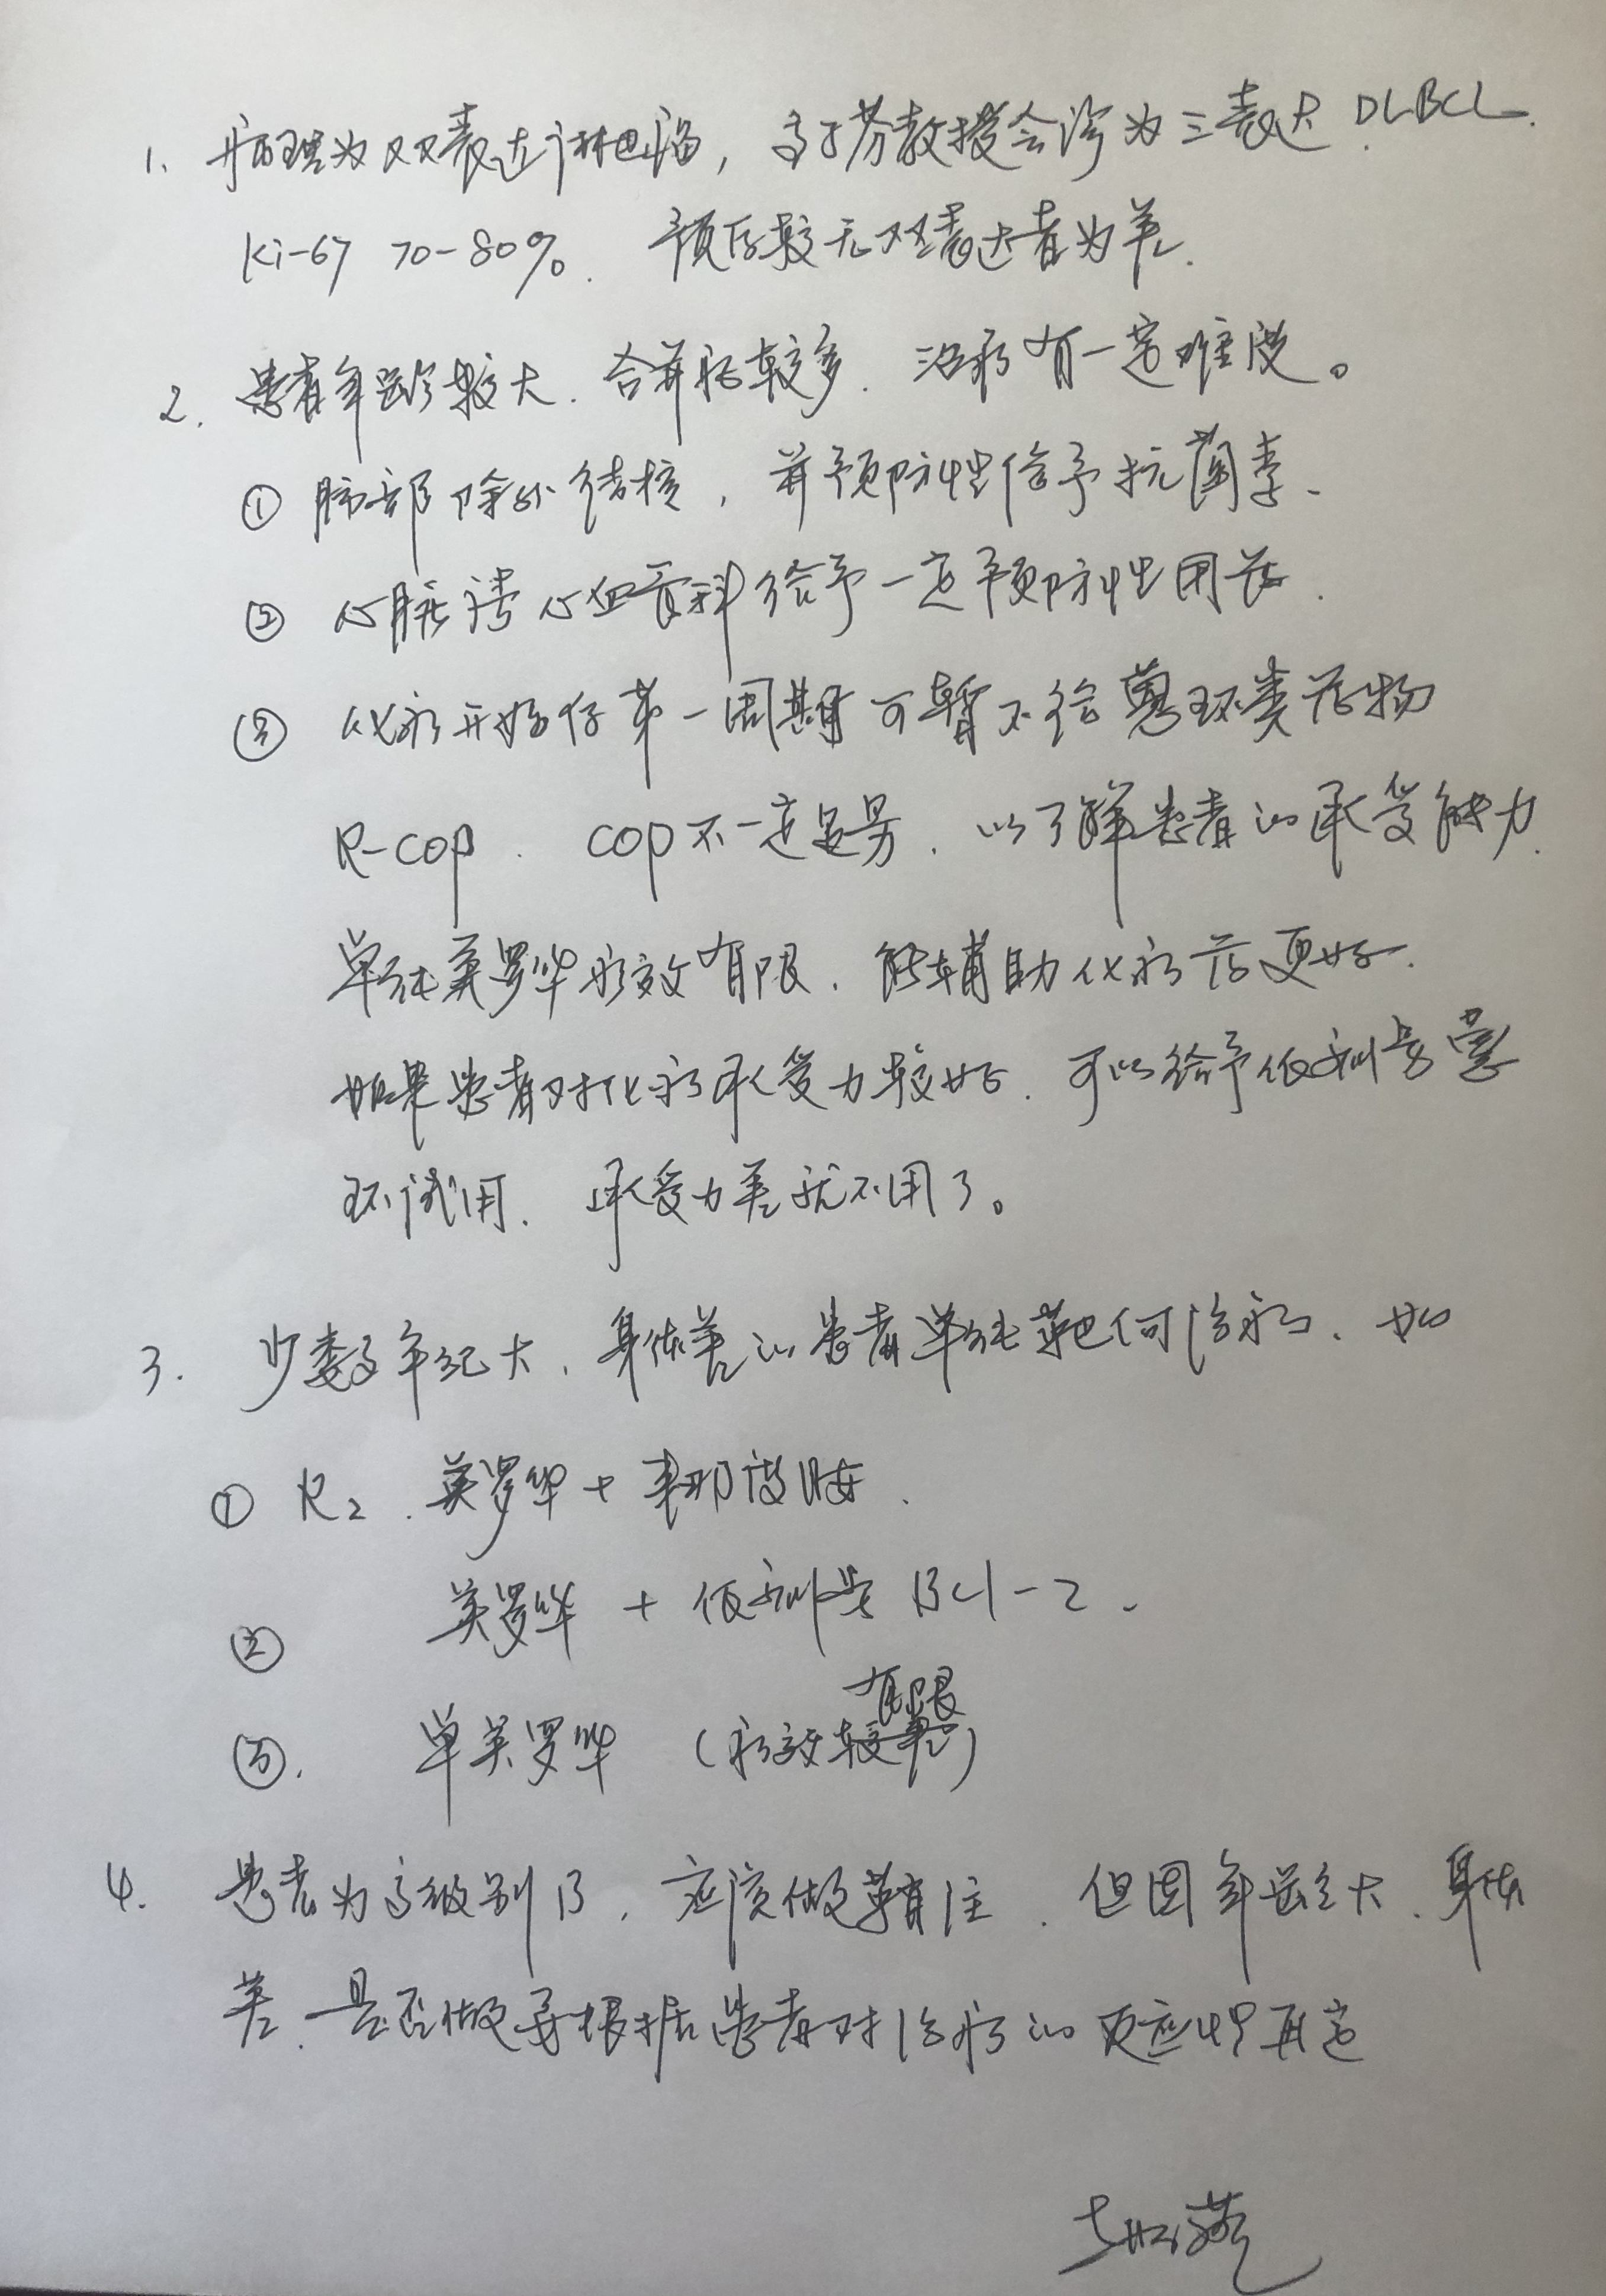 1. 病理为双表达淋巴瘤，高子芬教授会诊为三表达 DLBCL.
Ki-67 70-80%. 预后较无双表达者为差.
2. 患者年龄较大. 合并症较多. 治疗有一定难度。
① 肺部除外结核，并预防性给予抗菌素.
② 心脏请心血管科给予一定预防性用药.
③ 化疗开始仔第一周期可暂不给蒽环类药物
R-COP. COP不一定足量. 以了解患者的承受能力.
单纯美罗华疗效有限. 能辅助化疗药更好.
如果患者对化疗承受力较好. 可以给予低剂量蒽
环试用. 承受力差就不用了。
3. 少数年纪大. 身体差的患者单纯靶向治疗. 如
① R2. 美罗华 + 来那度胺.
② 美罗华 + 低剂量 Bcl-2.
③. 单美罗华 (疗效较有限)
4. 患者为高级别B, 应该做鞘注. 但因年龄大. 身体
差. 是否做要根据患者对治疗的反应中再定